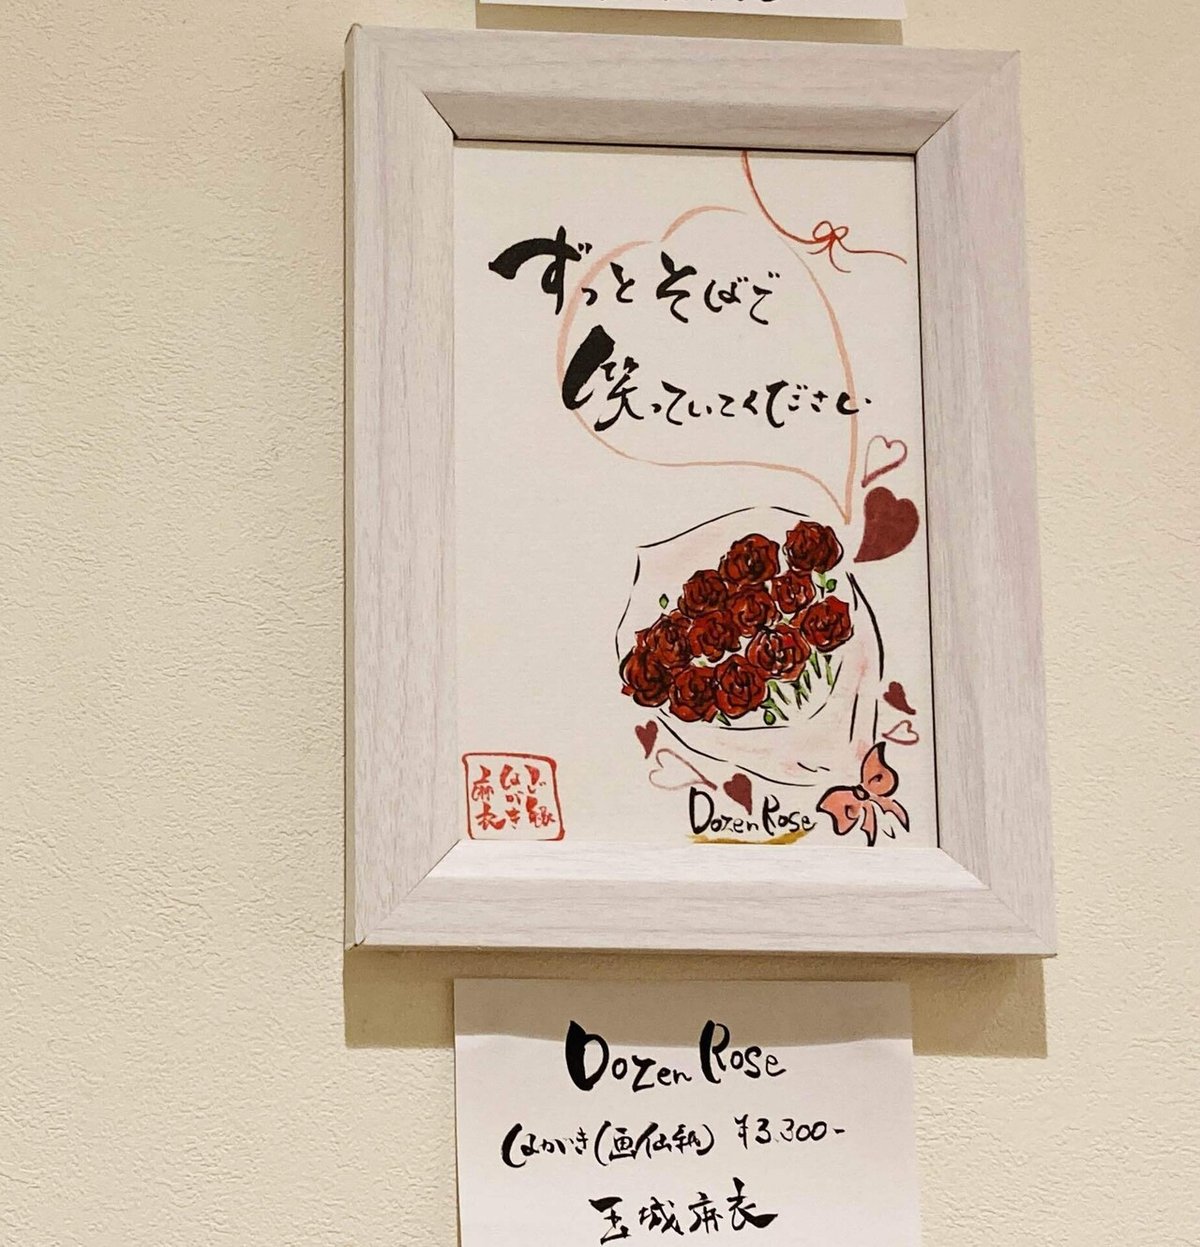 ずっとそばで
笑っていてください
Dozen Rose
ご縁
はがき
麻衣
Dozen Rose
はがき(画仙紙) ¥3,300-
玉城麻衣